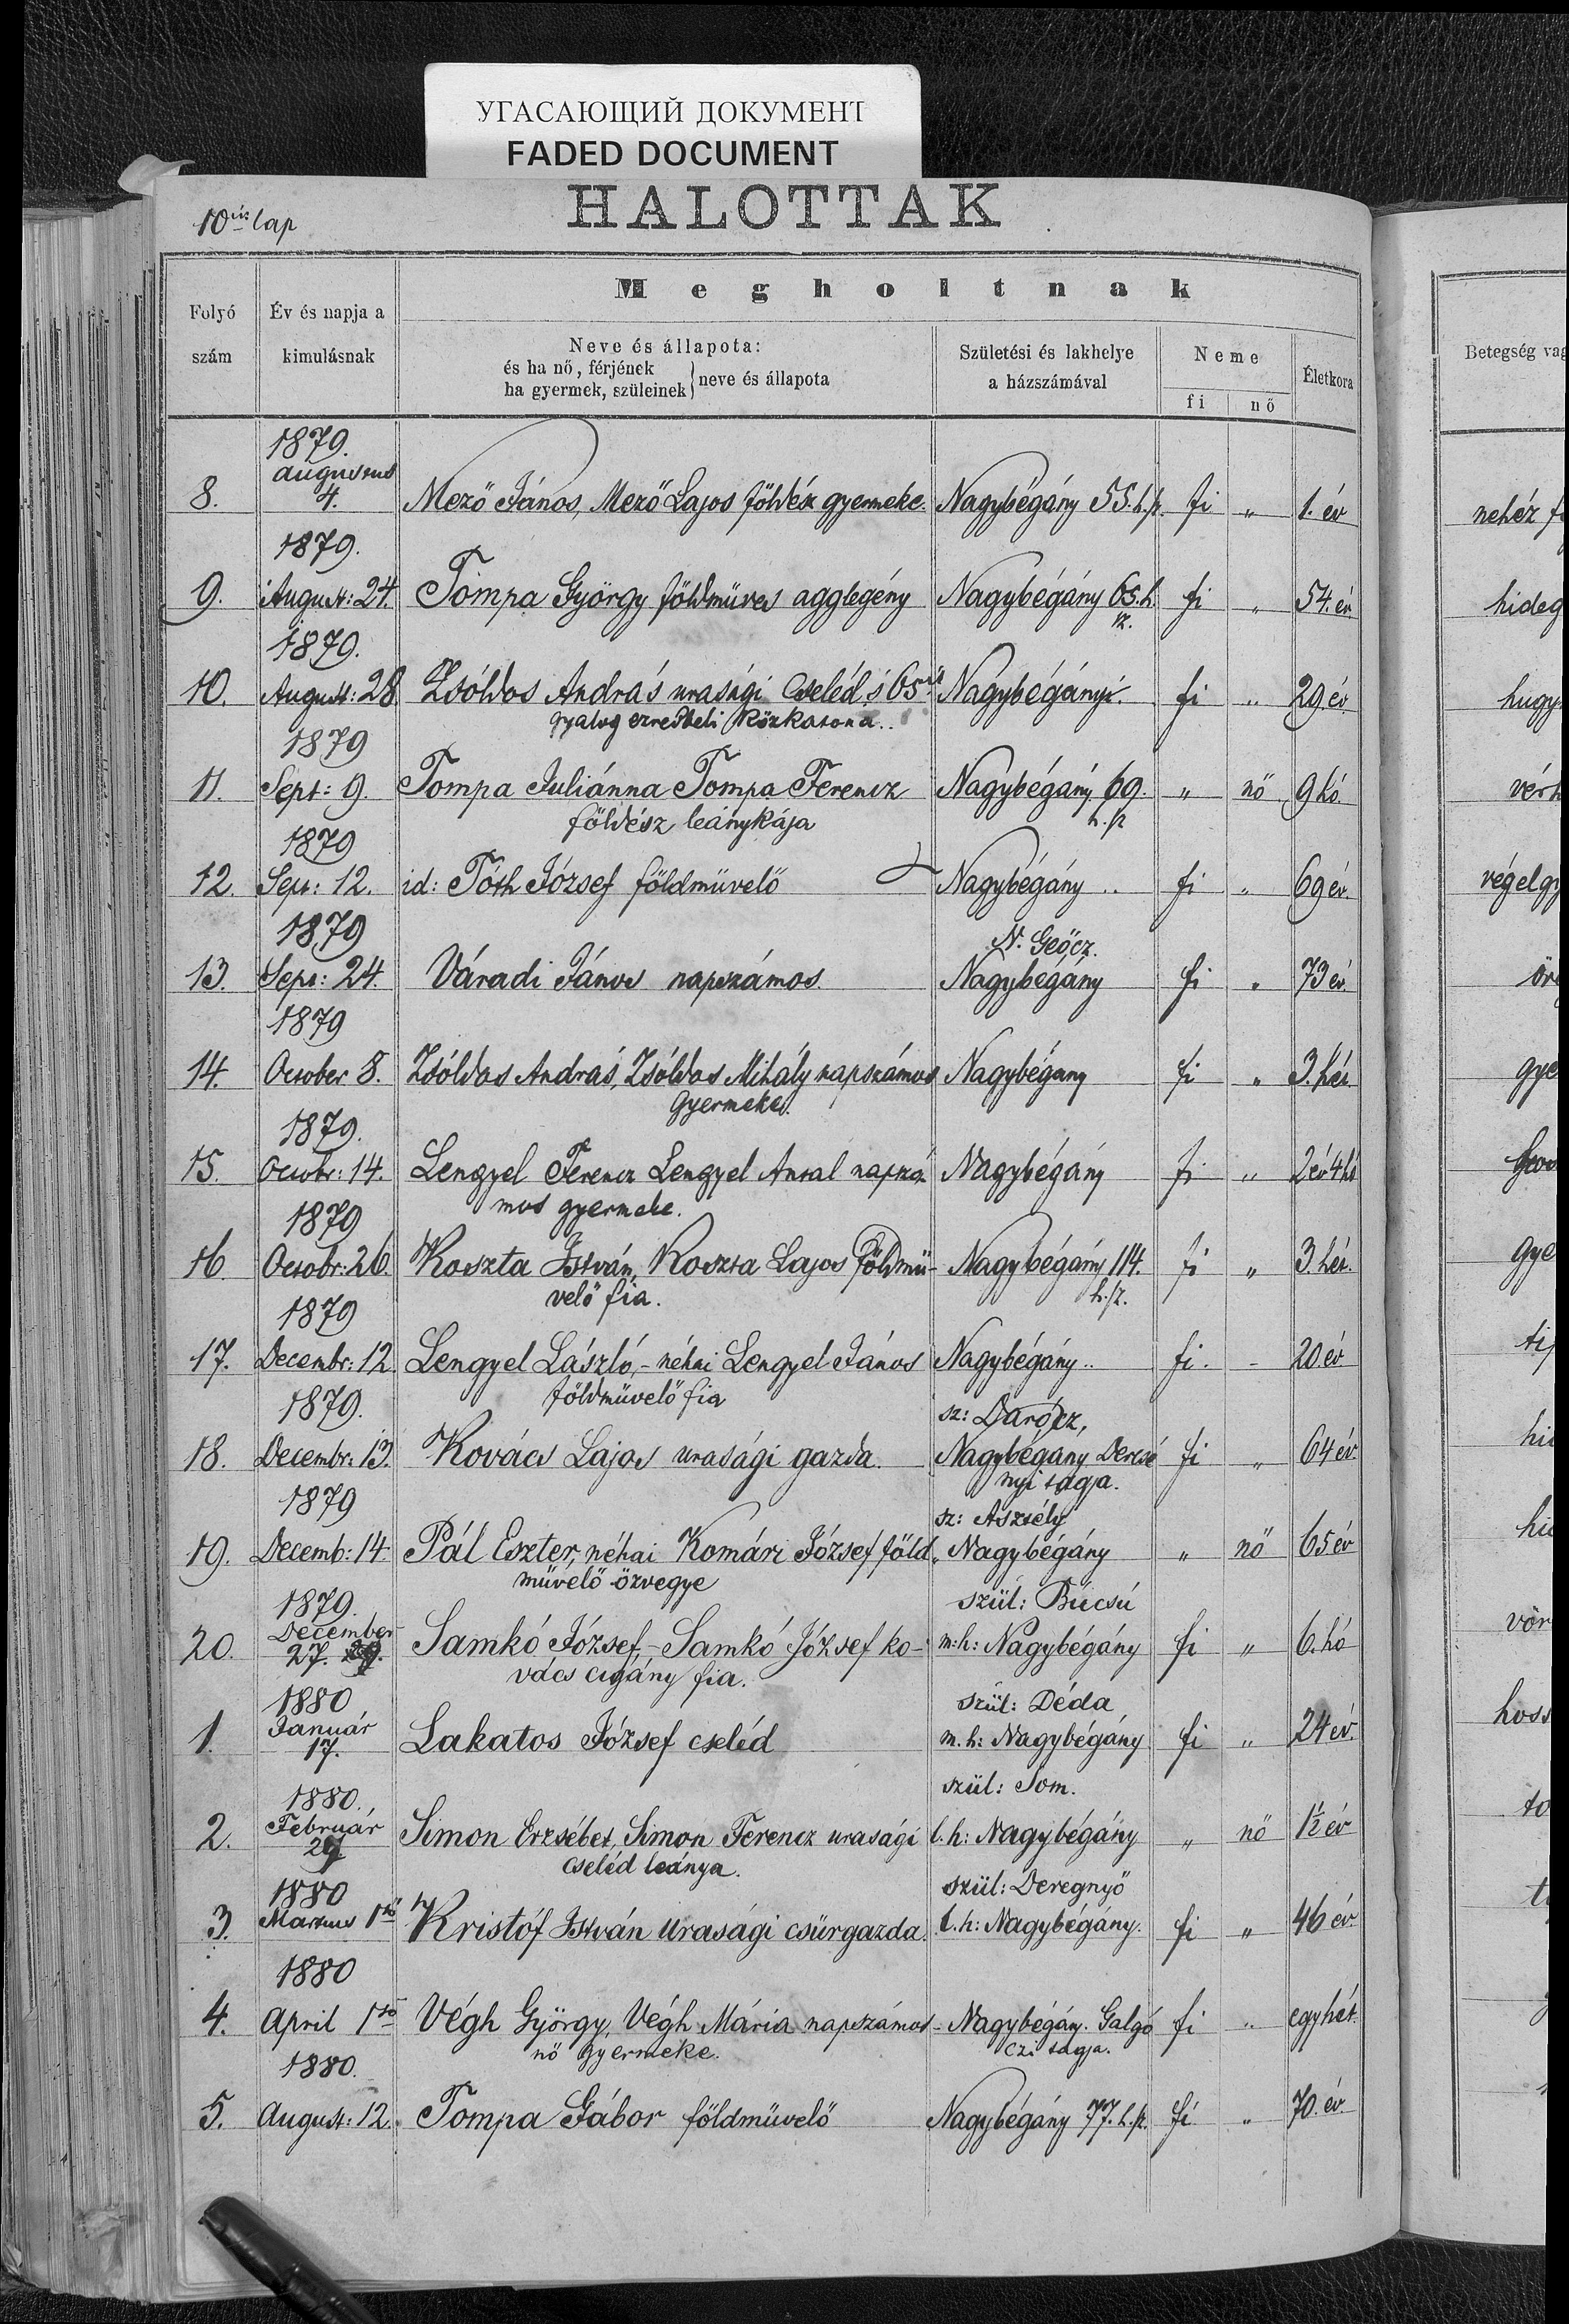 УГАСАЮЩИЙ ДОКУМЕНТ
FADED DOCUMENT
10ik lap
HALOTTAK
Megholtnak
Folyó szám
Év és napja a kimulásnak
Neve és állapota:
és ha nő, férjének
ha gyermek, szüleinek } neve és állapota
Születési és lakhelye
a házszámával
Neme
fi nő
Életkora
Betegség vag
1879.
augustus
8. 4. Mező János, Mező Lajos földész gyermeke. Nagybégány 55. h.sz. fi " 1. év
nehéz
1879.
9. August: 24. Tompa György földmüves agglegény Nagybégány 65. h. fi " 54. év
sz.
hideg
1879.
10. August: 28. Zsóldos András urasági Cseléd s 65ik Nagybégányi. fi " 29 év
gyalog ezredbeli közkatona..
hugy
1879
11. Sept: 9. Tompa Juliánna Tompa Ferencz Nagybégány 69. " nő 9 hó.
földész leánykája h.sz
vérh
1879
12. Sept: 12. id: Tóth József földmüvelő Nagybégány .. fi " 69 év.
végelgy
1879
N. Geőcz.
13. Sept: 24. Váradi János napszámos. Nagybégány fi " 73 év.
1879
14. October 8. Zsóldos András, Zsóldos Mihály napszámos Nagybégány fi " 3. hét.
Gyermeke.
gye
1879.
15. Octobr: 14. Lengyel Ferencz Lengyel Antal napszá- Nagybégány fi " 2 év 4 hó
mos gyermeke.
1879
16. Octobr: 26. Koszta István, Koszta Lajos földmü- Nagybégány 114. fi " 3. hét.
velő fia. h.sz.
gye
1879
17. Decembr: 12. Lengyel László, - néhai Lengyel János Nagybégány .. fi. - 20. év
földmüvelő fia
1879.
sz: Darócz,
18. Decembr: 13. Kovács Lajos urasági gazda. Nagybégány Dercsé fi " 64 év.
nyi tagja.
1879
sz: Asztély
19. Decemb: 14. Pál Eszter, néhai Komári József föld „ Nagybégány " nő 65 év
müvelő özvegye
1879.
szül: Búcsú
December
20. 27. Samkó József, - Samkó József ko- m:h: Nagybégány fi " 6. hó
vács cigány fia.
vör
1880
szül: Déda
Január
1. 17. Lakatos József cseléd m.h: Nagybégány fi " 24 év.
hoss
1880.
szül: Som.
Február
2. 29 Simon Erzsébet, Simon Ferencz urasági l.h: Nagybégány " nő 1½ év
cseléd leánya.
1880
szül: Deregnyő
3. Martius 1ső Kristóf István urasági csürgazda. l.h: Nagybégány. fi " 46 év.
1880
4. April 1ső Végh György, Végh Mária napszámos- Nagybégány. Galgó fi " egy hét.
nő gyermeke. czi tagja.
1880.
5. August: 12. Tompa Gábor földmüvelő Nagybégány 77. h.sz. fi " 70. év.